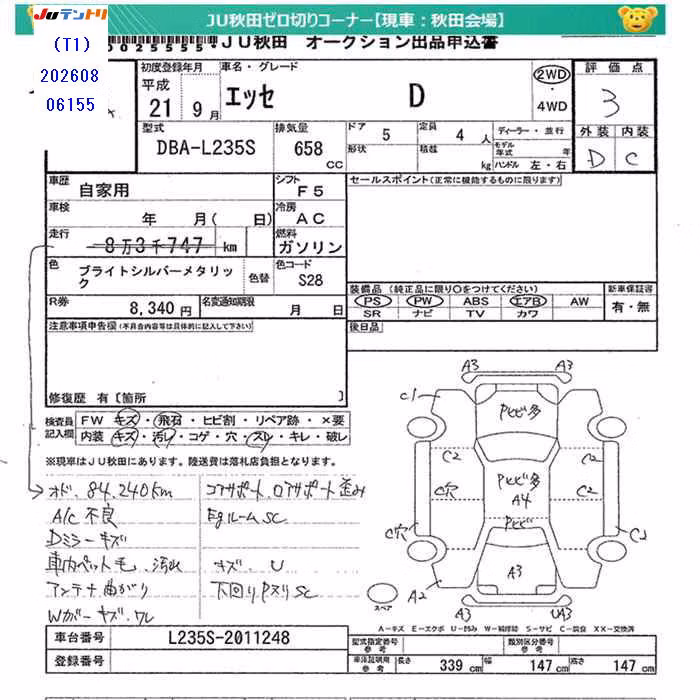 JU秋田ゼロ切りコーナー【現車：秋田会場】
JUテントリ
(T1)
202608
06155
0025555
JU秋田 オークション出品申込書
初度登録年月
車名・グレード
平成
21 9月
エッセ D
2WD
・
4WD
評価点
3
外装 内装
D C
型式
DBA-L235S
排気量
658 CC
ドア 5
定員 4人
形状
積載 kg
ディーラー・並行
モデル年式 年
ハンドル 左・右
車歴
自家用
シフト
F5
車検
年 月( 日)
冷房
AC
走行
8万3千747 km
燃料
ガソリン
色
ブライトシルバーメタリック
色替
色コード
S28
R券
8,340円
名変通知期限
月 日
セールスポイント(正常に機能するものに限ります)
装備品(純正品に限り○をつけてください)
PS PW ABS エアB AW
SR ナビ TV カワ
新車保証書
有・無
後日品
注意事項申告欄(不具合内容等は具体的に記入して下さい)
修復歴 有[箇所 ]
検査員記入欄
FW キズ・飛石・ヒビ割・リペア跡・×要
内装 キズ・汚レ・コゲ・穴・スレ・キレ・破レ
※現車はJU秋田にあります。陸送費は落札店負担となります。
オド、84,240km
A/C 不良
Dミラーキズ
車内ペット毛、汚れ
アンテナ曲がり
Wガーキズ・ワレ
コアサポート、ロアサポート歪み
EgルームSC
キズ、U
下回りPスリSC
A3 A3
C1
Pヒビ多
C2 C2
Pヒビ多
A4
C穴 C2
Pヒビ
C穴 C2
A3
A2
A3 UA3
スペア
A－キズ E－エクボ U－凹み W－補修跡 S－サビ C－腐食 XX－交換済
車台番号
L235S-2011248
登録番号
型式指定番号
参考
類別区分番号
参考
車庫証明用
参考
長さ 339 cm
幅 147 cm
高さ 147 cm